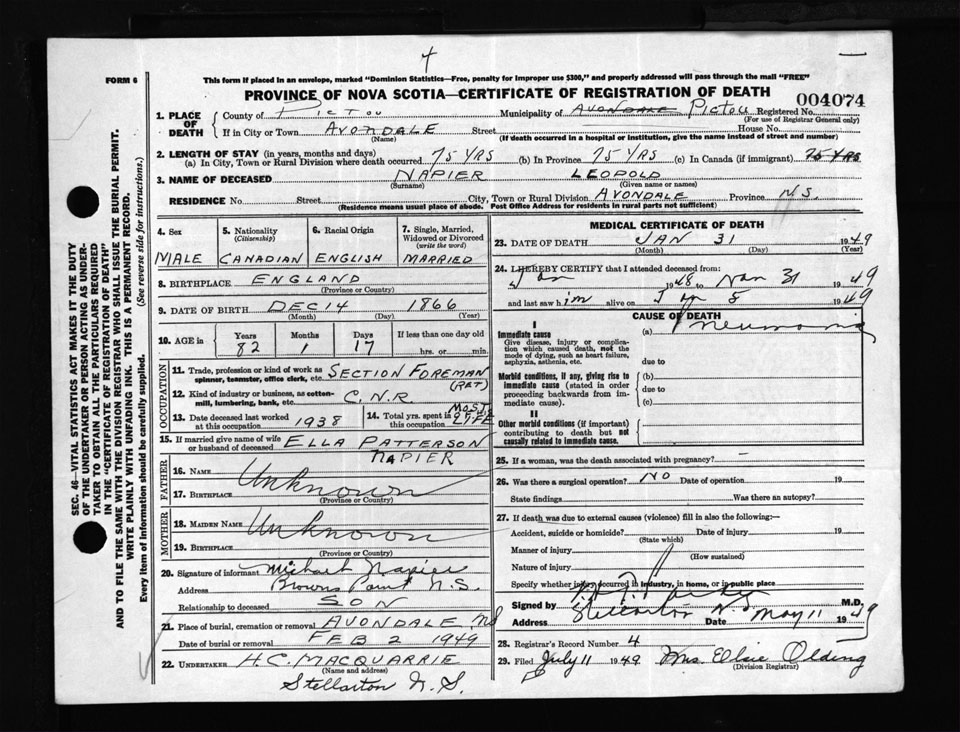 4
FORM 6
This form if placed in an envelope, marked "Dominion Statistics—Free, penalty for improper use $300," and properly addressed will pass through the mail "FREE"
PROVINCE OF NOVA SCOTIA—CERTIFICATE OF REGISTRATION OF DEATH
004074
1. PLACE OF DEATH
County of PICTOU Municipality of AVONDALE PICTOU Registered No.
(For use of Registrar General only)
If in City or Town AVONDALE Street House No.
(Name) (If death occurred in a hospital or institution, give the name instead of street and number)
2. LENGTH OF STAY (in years, months and days)
(a) In City, Town or Rural Division where death occurred 75 YRS (b) In Province 75 YRS (c) In Canada (if immigrant) 75 YRS
3. NAME OF DECEASED NAPIER LEOPOLD
(Surname) (Given name or names)
RESIDENCE No. Street City, Town or Rural Division AVONDALE Province N.S.
(Residence means usual place of abode. Post Office Address for residents in rural parts not sufficient)
4. Sex
MALE
5. Nationality
(Citizenship)
CANADIAN
6. Racial Origin
ENGLISH
7. Single, Married, Widowed or Divorced
(write the word)
MARRIED
8. BIRTHPLACE ENGLAND
(Province or Country)
9. DATE OF BIRTH DEC 14 1866
(Month) (Day) (Year)
10. AGE in Years Months Days If less than one day old
82 1 17 hrs. or min.
OCCUPATION
11. Trade, profession or kind of work as spinner, teamster, office clerk, etc. SECTION FOREMAN
(RET)
12. Kind of industry or business, as cotton-mill, lumbering, bank, etc. C.N.R.
13. Date deceased last worked at this occupation 1938
14. Total yrs. spent in MOST OF HIS LIFE
15. If married give name of wife or husband of deceased ELLA PATTERSON
NAPIER
FATHER
16. NAME Unknown
17. BIRTHPLACE
(Province or Country)
MOTHER
18. MAIDEN NAME Unknown
19. BIRTHPLACE
(Province or Country)
20. Signature of informant Michael Napier
Address Browns Point N.S.
Relationship to deceased SON
21. Place of burial, cremation or removal AVONDALE, NS
Date of burial or removal FEB 2 1949
22. UNDERTAKER H.C. MACQUARRIE
(Name and address)
Stellarton N.S.
MEDICAL CERTIFICATE OF DEATH
23. DATE OF DEATH JAN 31 1949
(Month) (Day) (Year)
24. I HEREBY CERTIFY that I attended deceased from:
Jan 1948 to Jan 31 1949
and last saw him alive on Jan 8 1949
CAUSE OF DEATH
I
Immediate cause (a) Pneumonia
Give disease, injury or complication which caused death, not the mode of dying, such as heart failure, asphyxia, asthenia, etc. due to
Morbid conditions, if any, giving rise to immediate cause (stated in order proceeding backwards from immediate cause). (b)
due to
(c)
II
Other morbid conditions (if important) contributing to death but not causally related to immediate cause.
25. If a woman, was the death associated with pregnancy? —
26. Was there a surgical operation? NO Date of operation 19
State findings Was there an autopsy?
27. If death was due to external causes (violence) fill in also the following:—
Accident, suicide or homicide? Date of injury 19
(State which)
Manner of injury
(How sustained)
Nature of injury
Specify whether injury occurred in industry, in home, or in public place
Signed by M.D.
Address Stellarton N.S. Date May 11 1949
28. Registrar's Record Number 4
29. Filed July 11 1949 Mrs. Elsie Olding
(Division Registrar)
SEC. 46—VITAL STATISTICS ACT MAKES IT THE DUTY
OF THE UNDERTAKER OR PERSON ACTING AS UNDERTAKER TO OBTAIN ALL THE PARTICULARS REQUIRED
IN THE "CERTIFICATE OF REGISTRATION OF DEATH"
AND TO FILE THE SAME WITH THE DIVISION REGISTRAR WHO SHALL ISSUE THE BURIAL PERMIT.
WRITE PLAINLY WITH UNFADING INK. THIS IS A PERMANENT RECORD.
Every item of information should be carefully supplied. (See reverse side for instructions.)